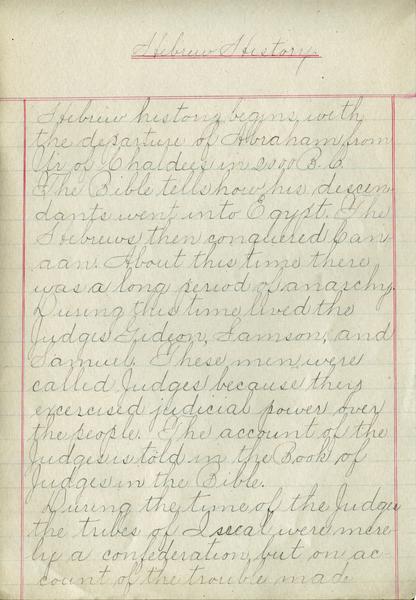 Hebrew History.
Hebrew history begins with
the departure of Abraham from
Ur of Chaldees in 2000 B.C.
The Bible tells how his descen-
dants went into Egypt. The
Hebrews then conquered Can-
aan. About this time there
was a long period of anarchy.
During this time lived the
Judges Gideon, Samson, and
Samuel. These men were
called Judges because they
excercised judicial power over
the people. The account of the
Judges is told in the Book of
Judges in the Bible.
During the time of the Judges
the tribes of Isreal were mere-
ly a confederation, but on ac-
count of the trouble made